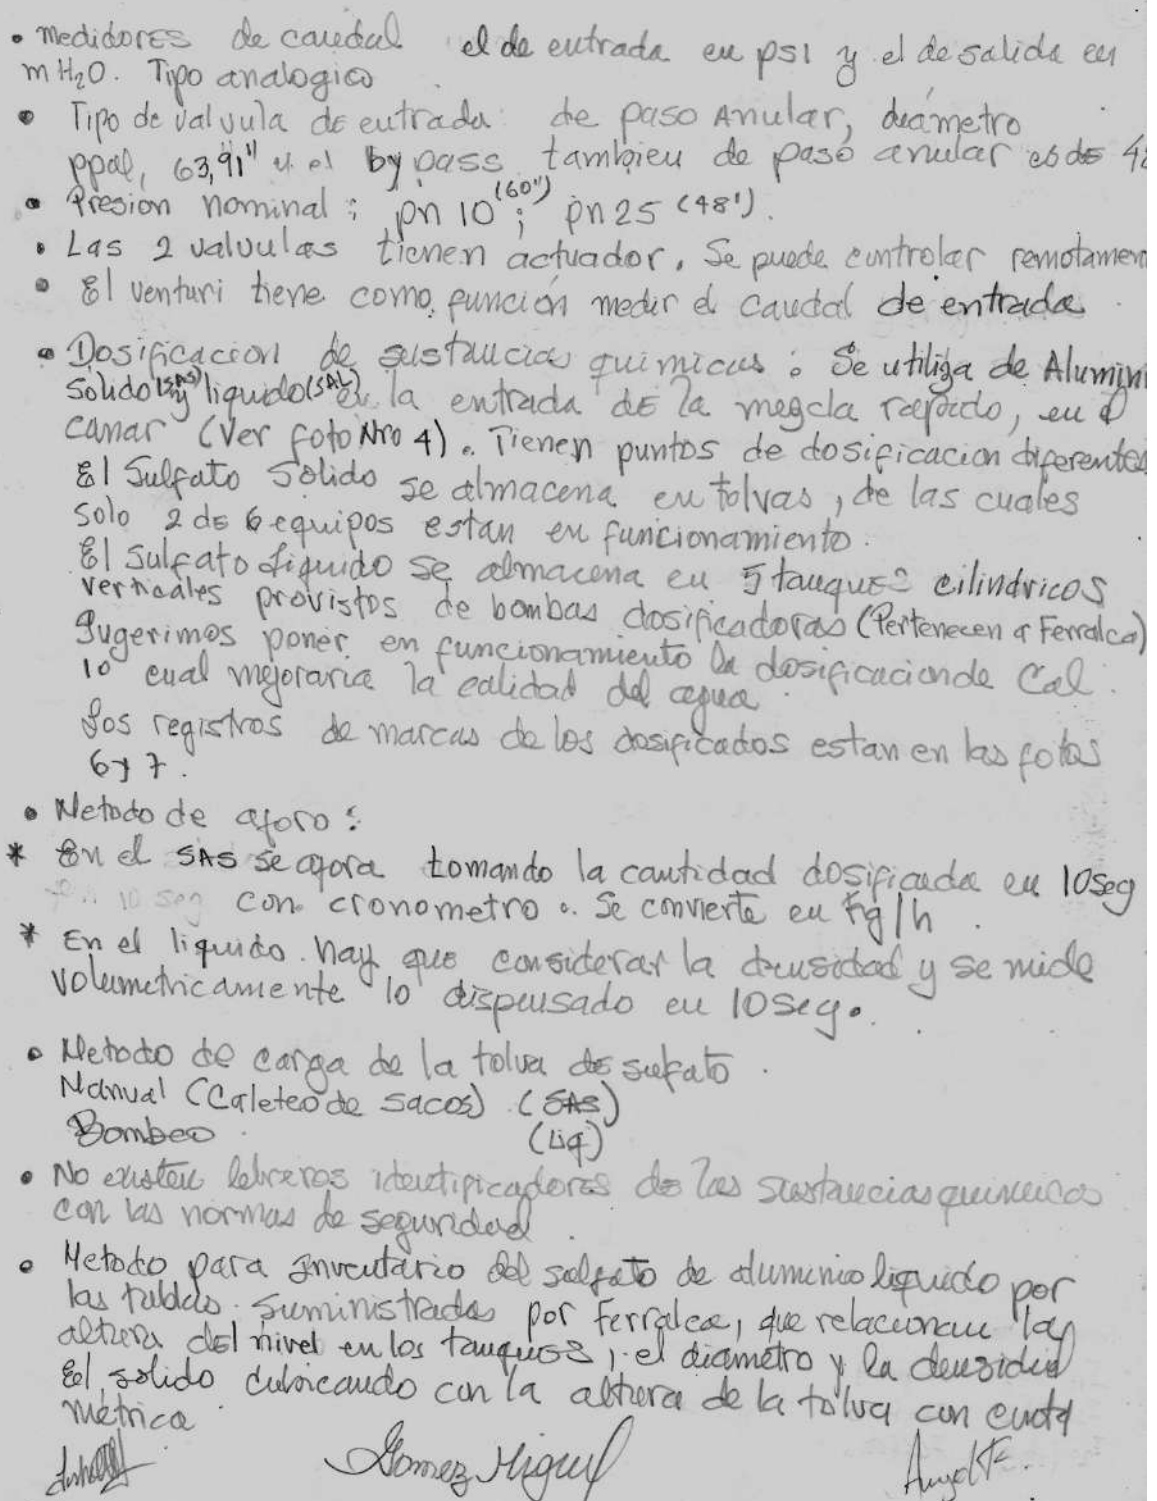 • Medidores de caudal el de entrada en psi y el de salida en
mH2O. Tipo analogico
• Tipo de valvula de entrada: de paso Anular, diámetro
ppal, 63,91" y el by pass tambien de paso anular es de 48
• Presion nominal: pn 10 (60"); pn 25 (48').
• Las 2 valvulas tienen actuador. Se puede controlar remotamen
• El venturi tiene como función medir el caudal de entrada
• Dosificacion de sustancias quimicas: Se utiliza de Alumini
Solido (SAS) y liquido (SAL) en la entrada de la mezcla rapido, en el
canar (Ver foto Nro 4). Tienen puntos de dosificacion diferentes
El Sulfato Solido se almacena en tolvas, de las cuales
Solo 2 de 6 equipos estan en funcionamiento.
El Sulfato Liquido se almacena en 5 tanques cilindricos
verticales provistos de bombas dosificadoras (Pertenecen a Ferralca)
Sugerimos poner en funcionamiento la dosificacion de Cal.
lo cual mejoraria la calidad del agua
Los registros de marcas de los dosificados estan en las fotos
6 y 7.
• Metodo de aforo:
* En el SAS se afora tomando la cantidad dosificada en 10 seg
10 seg con cronometro. Se convierte en Kg/h.
* En el liquido. hay que considerar la densidad y se mide
volumetricamente lo dispensado en 10 seg.
• Metodo de carga de la tolva de sulfato.
Manual (Caleteo de sacos) (SAS)
Bombeo (Liq)
• No existen letreros identificadores de las sustancias quimicas
con las normas de seguridad.
• Metodo para inventario del sulfato de aluminio liquido por
las tablas suministradas por Ferralca, que relacionan la
altura del nivel en los tanques, el diametro y la densidad
El solido cubicando con la altura de la tolva con cinta
metrica.
Gomez Miguel